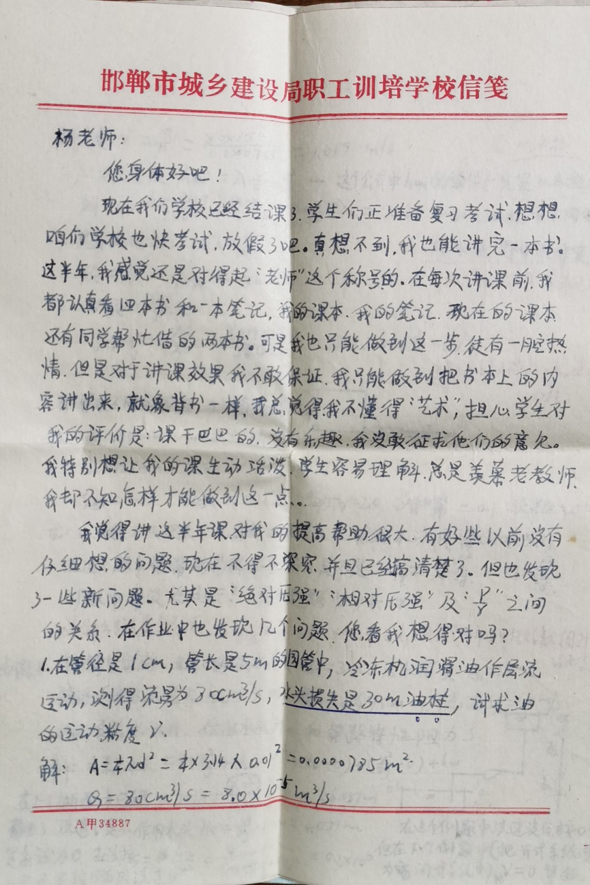 邯郸市城乡建设局职工训培学校信笺
杨老师:
您身体好吧!
现在我们学校已经结课了.学生们正准备复习考试.想想.
咱们学校也快考试.放假了吧。真想不到,我也能讲完一本书。
这半年.我感觉还是对得起“老师”这个称号的.在每次讲课前.我
都认真看四本书和一本笔记,我的课本.我的笔记.现在的课本
还有同学帮忙借的两本书。可是我也只能做到这一步.徒有一腔热
情.但是对于讲课效果我不敢保证.我只能做到把书本上的内
容讲出来,就象背书一样,我总觉得我不懂得“艺术”,担心学生对
我的评价是:课干巴巴的,没有乐趣.我没敢征求他们的意见。
我特别想让我的课生动活泼.学生容易理解.总是羡慕老教师.
我却不知怎样才能做到这一点。
我觉得讲这半年课对我的提高帮助很大.有好些以前没有
仔细想的问题.现在不得不深究.并且已经搞清楚了。但也发现
了一些新问题。尤其是“绝对压强”“相对压强”及“P/γ”之间
的关系.在作业中也发现几个问题.您看我想得对吗?
1.在管径是1cm,管长是5m的圆管中,冷冻机润滑油作层流
运动,测得流量为80cm³/s,水头损失是30m油柱,试求油
的运动粘度ν.
解: A=¼πd²=¼×3.14×0.01²=0.0000785m²
Q=80cm³/s=8.0×10⁻⁵m³/s
A甲34887